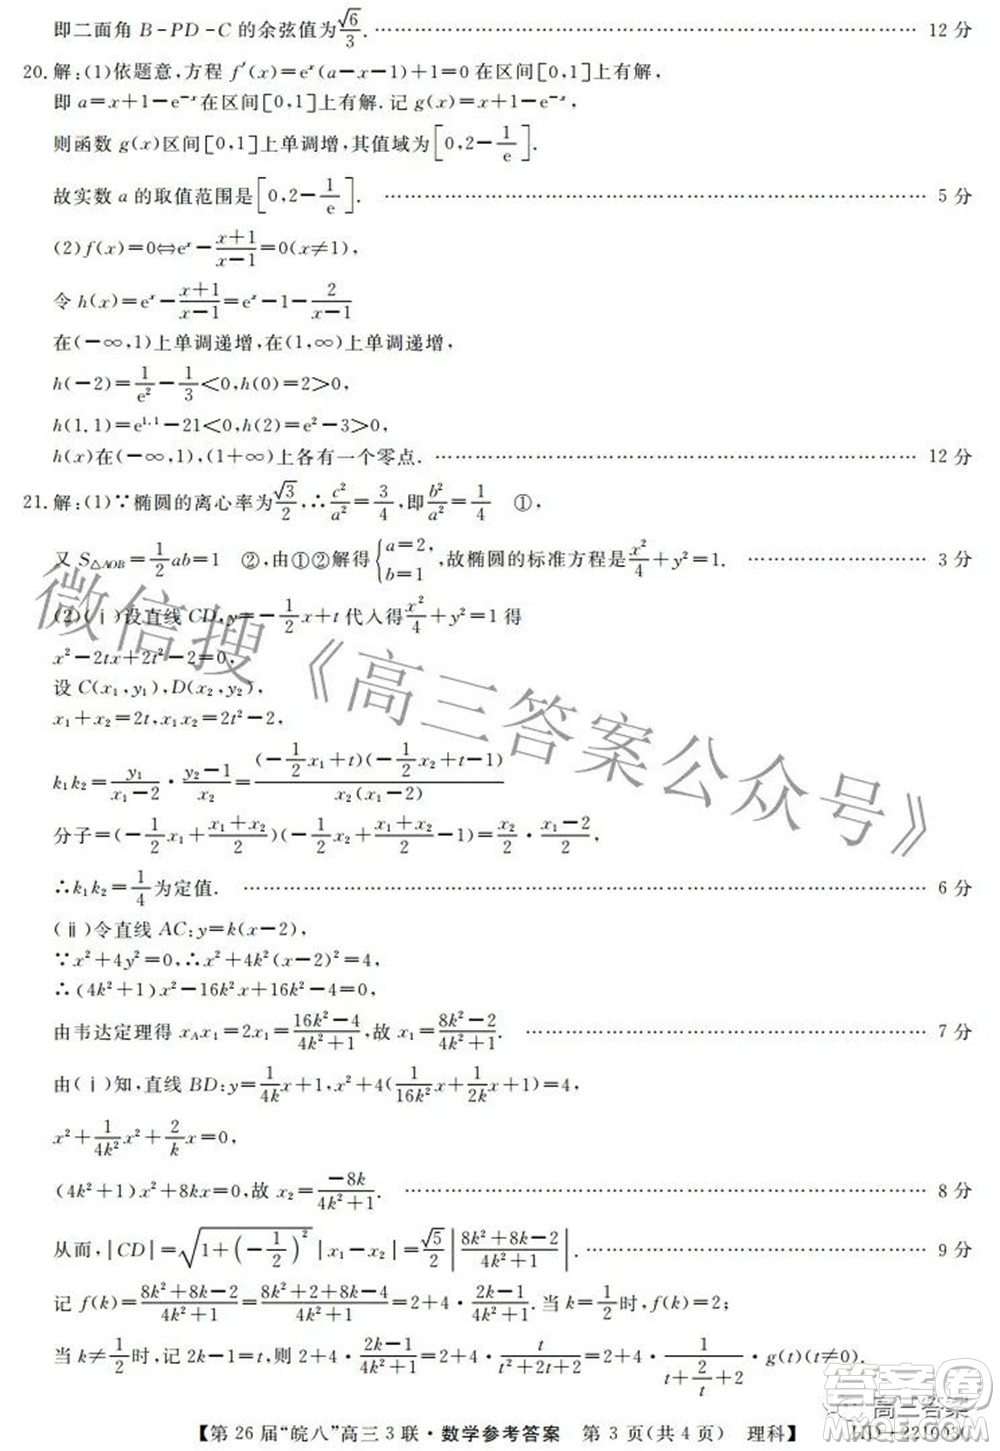 即二面角 B-PD-C 的余弦值为√6/3. …… 12 分
20.解:(1)依题意,方程 f′(x)=eˣ(a-x-1)+1=0 在区间[0,1]上有解,
即 a=x+1-e⁻ˣ在区间[0,1]上有解.记 g(x)=x+1-e⁻ˣ,
则函数 g(x)区间[0,1]上单调增,其值域为[0,2-1/e].
故实数 a 的取值范围是[0,2-1/e]. …… 5 分
(2)f(x)=0⇔eˣ-(x+1)/(x-1)=0(x≠1),
令 h(x)=eˣ-(x+1)/(x-1)=eˣ-1-2/(x-1)
在(-∞,1)上单调递增,在(1,∞)上单调递增,
h(-2)=1/e²-1/3<0,h(0)=2>0,
h(1.1)=e¹·¹-21<0,h(2)=e²-3>0,
h(x)在(-∞,1),(1+∞)上各有一个零点. …… 12 分
21.解:(1)∵椭圆的离心率为√3/2,∴c²/a²=3/4,即b²/a²=1/4 ①,
又 S△AOB=1/2ab=1 ②,由①②解得{a=2,b=1,故椭圆的标准方程是x²/4+y²=1. …… 3 分
(2)(ⅰ)设直线 CD,y=-1/2x+t 代入得x²/4+y²=1 得
x²-2tx+2t²-2=0,
设 C(x₁,y₁),D(x₂,y₂),
x₁+x₂=2t,x₁x₂=2t²-2,
k₁k₂=y₁/(x₁-2)·(y₂-1)/x₂=(-1/2x₁+t)(-1/2x₂+t-1)/x₂(x₁-2)
分子=(-1/2x₁+(x₁+x₂)/2)(-1/2x₂+(x₁+x₂)/2-1)=x₂/2·(x₁-2)/2,
∴k₁k₂=1/4为定值. …… 6 分
(ⅱ)令直线 AC:y=k(x-2),
∵x²+4y²=0,∴x²+4k²(x-2)²=4,
∴(4k²+1)x²-16k²x+16k²-4=0,
由韦达定理得 x_Ax₁=2x₁=(16k²-4)/(4k²+1),故 x₁=(8k²-2)/(4k²+1). …… 7 分
由(ⅰ)知,直线 BD:y=1/4k x+1,x²+4(1/16k² x²+1/2k x+1)=4,
x²+1/4k² x²+2/k x=0,
(4k²+1)x²+8kx=0,故 x₂=-8k/(4k²+1). …… 8 分
从而,|CD|=√(1+(-1/2)²)|x₁-x₂|=√5/2|(8k²+8k-2)/(4k²+1)|. …… 9 分
记 f(k)=(8k²+8k-2)/(4k²+1)=(8k²+2+8k-4)/(4k²+1)=2+4·(2k-1)/(4k²+1).当 k=1/2时,f(k)=2;
当 k≠1/2时,记 2k-1=t,则 2+4·(2k-1)/(4k²+1)=2+4·t/(t²+2t+2)=2+4·1/(t+2/t+2)·g(t)(t≠0).
【第 26 届“皖八”高三 3 联·数学参考答案 第 3 页(共 4 页) 理科】
微信搜《高三答案公众号》
高三答案